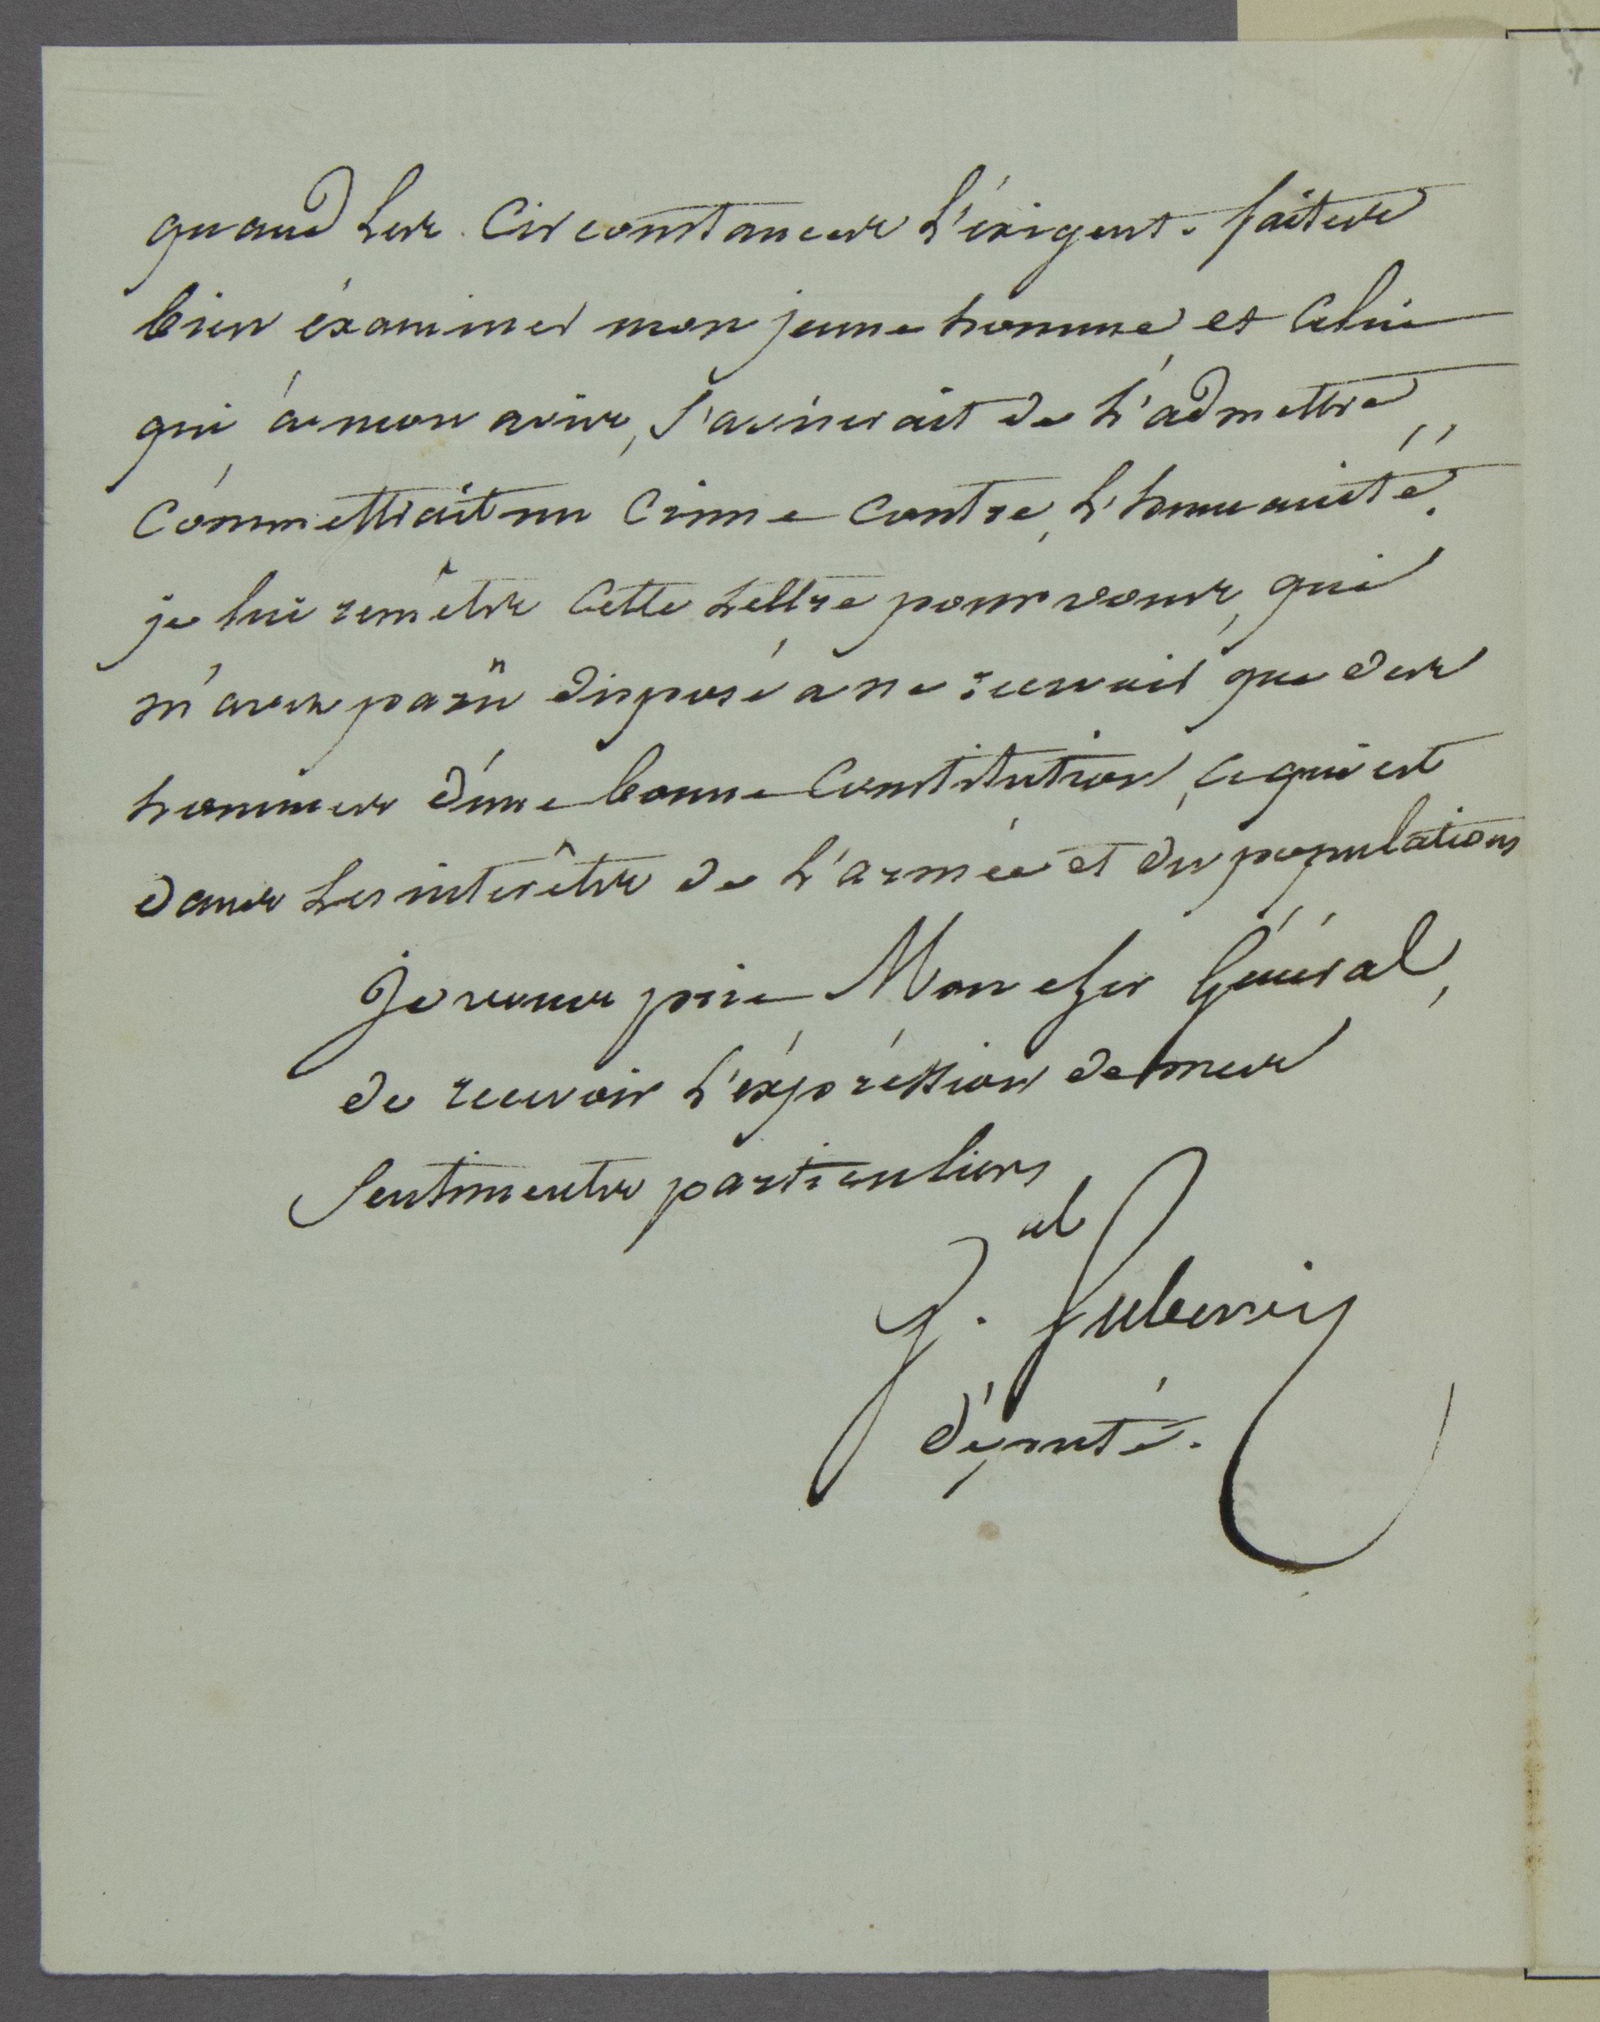 quand les circonstances l'éxigent. faites
bien éxaminer mon jeune homme et celui
qui à mon avis, s'aviserait de l'admettre
cómmettrait un crime contre l'humanité.
je lui remêts cette lettre pour vous, qui
m'avez parü disposé à ne recevoir que des
hommes d'une bonne constitution, ce qui est
dans les interêts de l'armée et des populations
Je vous prie Mon cher Général,
de recevoir l'éxpréssion de mes
sentiments particuliers
G.al
député.